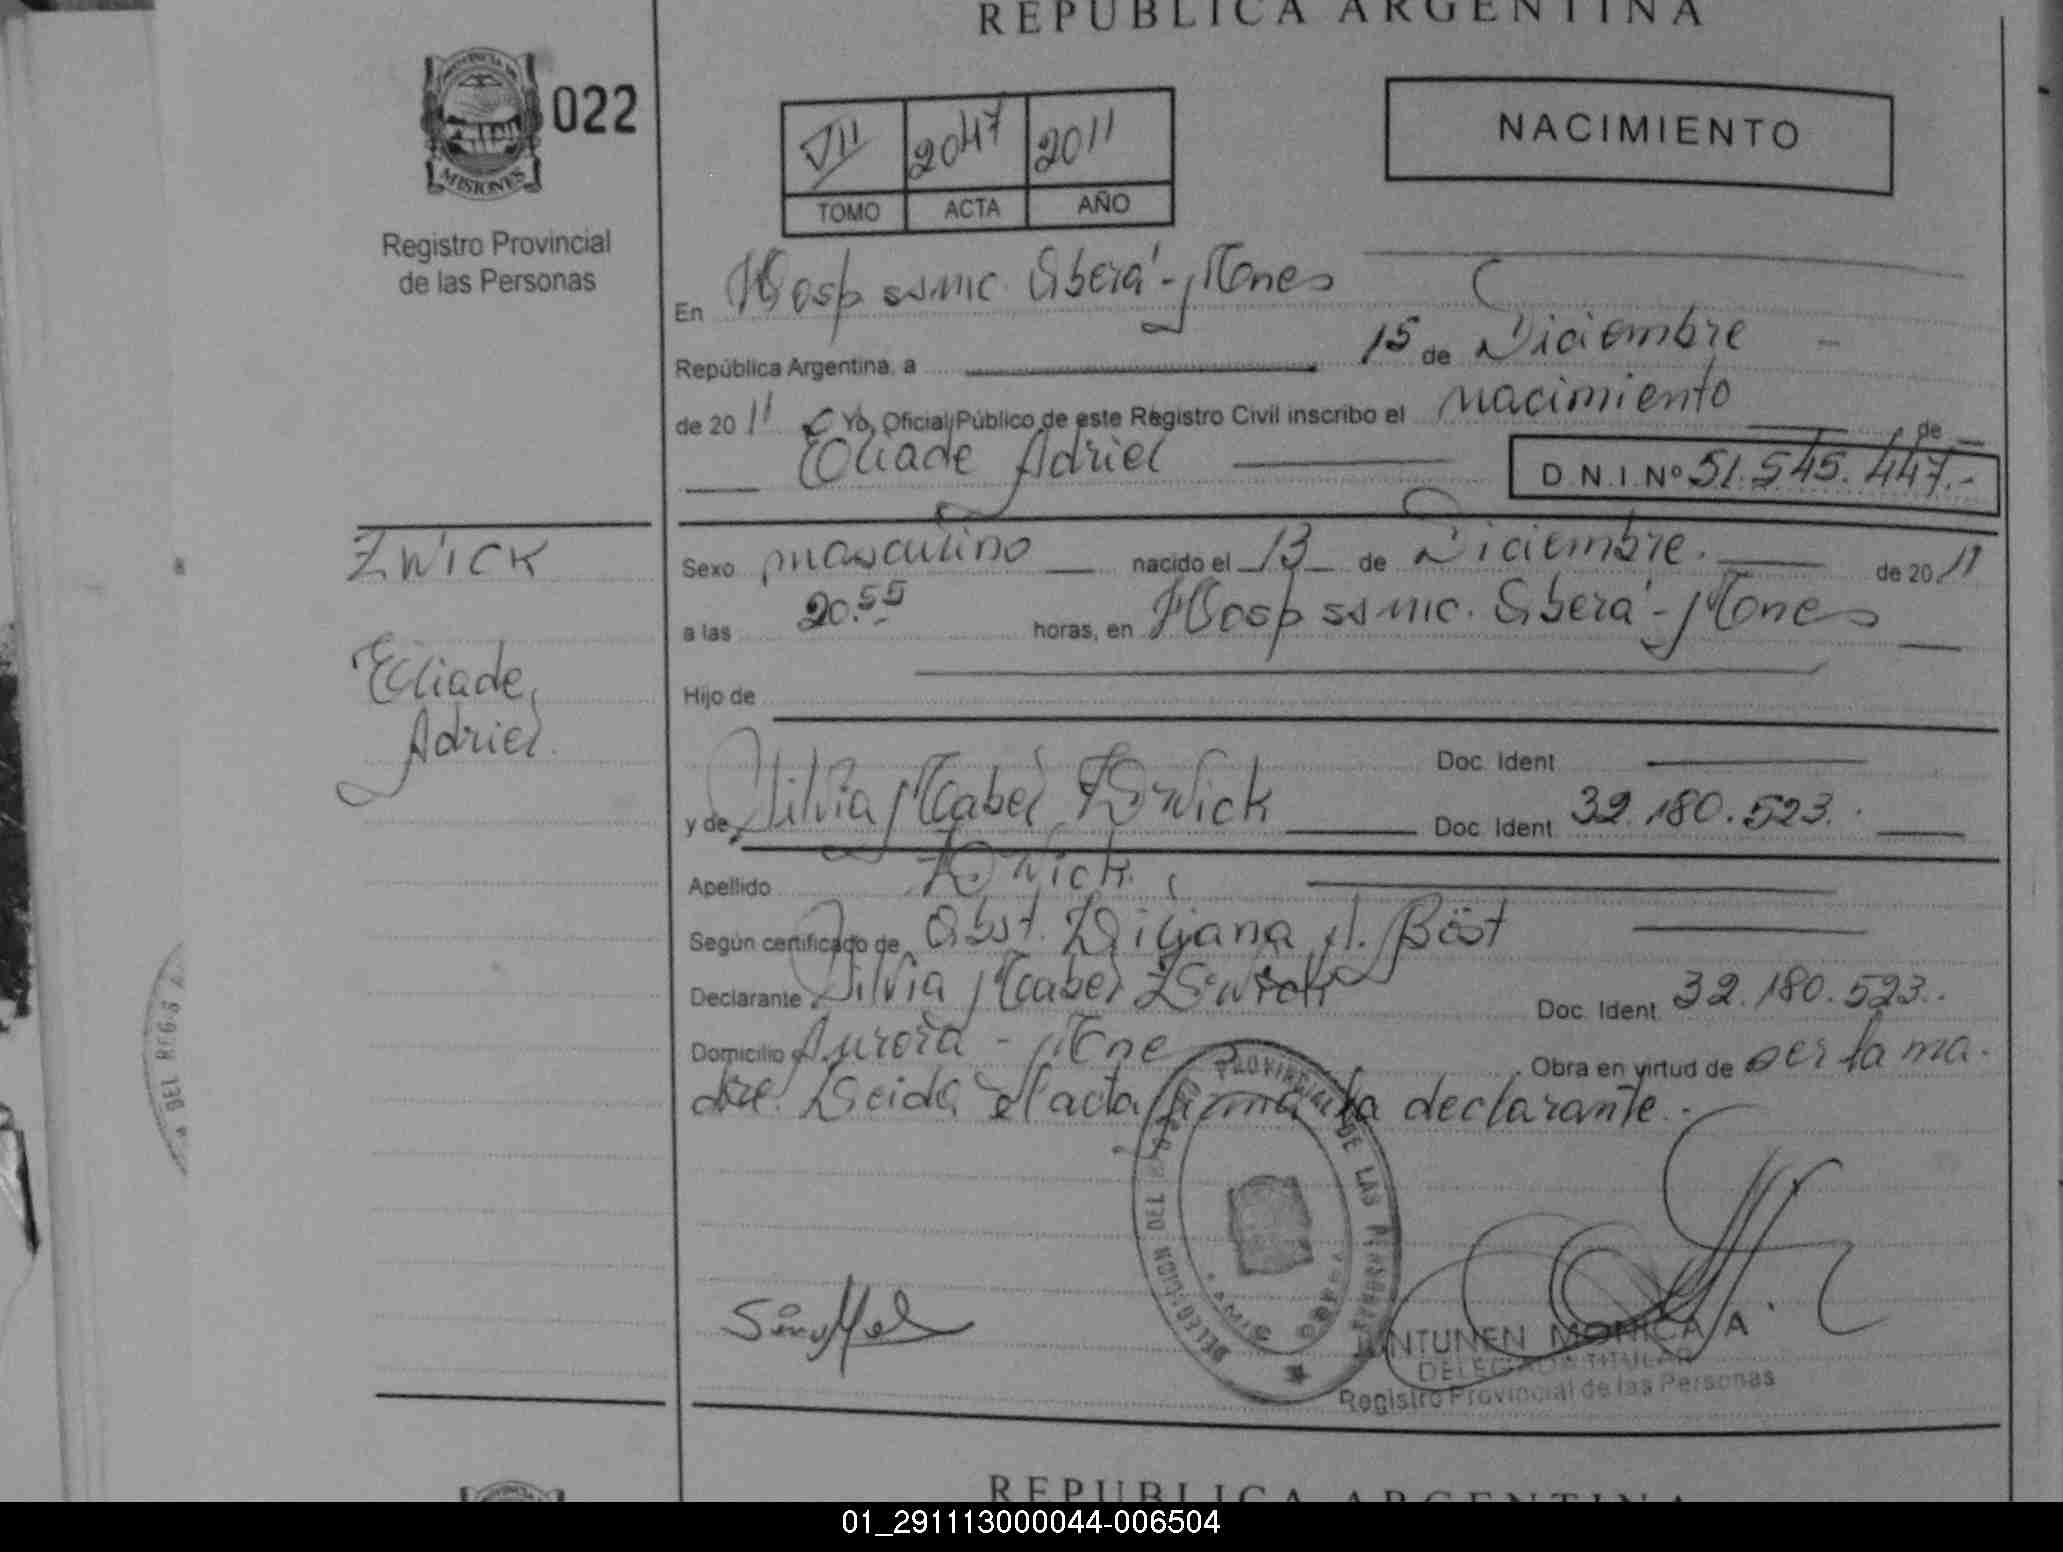 REPUBLICA ARGENTINA
PROVINCIA DE
MISIONES
022
Registro Provincial
de las Personas
VII 2047 2011
TOMO ACTA AÑO
NACIMIENTO
En Hosp ssmic. Oberá - Mones
República Argentina, a 15 de Diciembre
de 2011 Yo, Oficial Público de este Registro Civil inscribo el nacimiento de
Eliade Adriel D.N.I. Nº 51.545.447.-
ZWICK
Eliade,
Adriel.
Sexo masculino nacido el 13 de Diciembre. de 2011
a las 20.55 horas, en Hosp ssmic. Oberá - Mones
Hijo de
Doc. Ident
y de Silvia Mabel Zwick Doc. Ident 32.180.523.
Apellido Zwick.
Según certificado de Obst. Liliana A. Böst
Declarante Silvia Mabel Zwick Doc. Ident. 32.180.523.
Domicilio Aurora - Mne Obra en virtud de ser la ma-
dre. Leida el acta firma la declarante.-
PROVINCIAL DE LAS PERSONAS
ANTUNEN MONICA A.
DELEGADA TITULAR
Registro Provincial de las Personas
DEL REG
REPUBLICA ARGENTINA
01_291113000044-006504